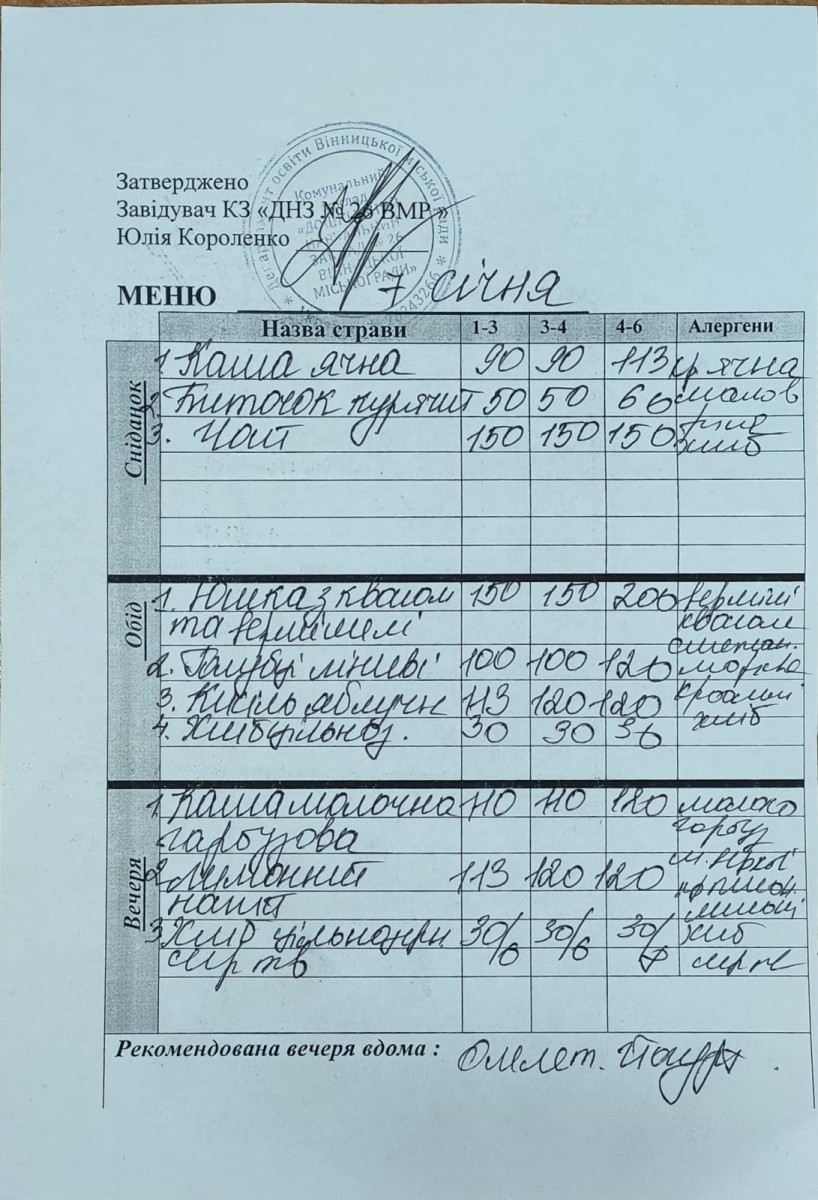 Затверджено
Завідувач КЗ «ДНЗ № 26 ВМР »
Юлія Короленко
Департамент освіти Вінницької міської ради
Комунальний
заклад
МІСЬКОЇ РАДИ»
МЕНЮ 7 січня
Назва страви 1-3 3-4 4-6 Алергени
Сніданок
1. Каша ячна 90 90 113 кр ячна
2. Биточок курячий 50 50 60
3. Чай 150 150 150 хліб
Обід
1. Юшка з квасол 150 150 200 верміш
та вермішелі квасол
сметан.
2. Голубці ліниві 100 100 120 морква
3. Кисіль яблучн 113 120 120
4. Хліб цільноз. 30 30 30 хліб
Вечеря
1 Каша молочна 110 110 120 молоко
гарбузова гарбуз
2 Лимонний 113 120 120
напій
3 Хліб цільнозерн 30/6 30/6 30/8 хліб
сир тв сир тв
Рекомендована вечеря вдома : Омлет. Йогурт.